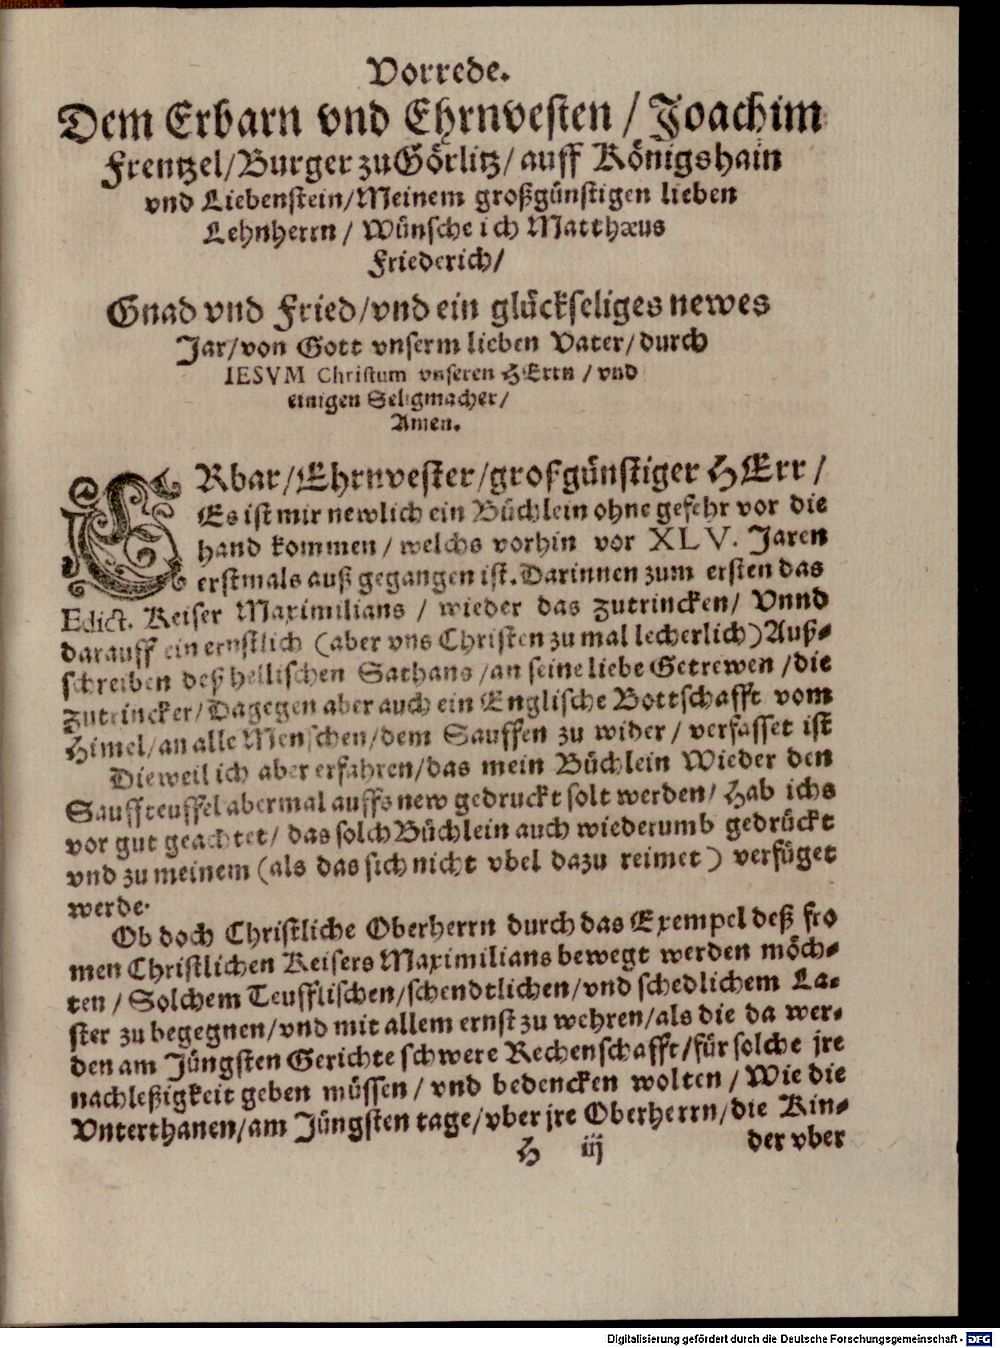 Vorrede.
Dem Erbarn vnd Ehrnvesten / Joachim
Frentzel / Burger zu Görlitz / auff Königshain
vnd Liebenstein / Meinem großgünstigen lieben
Lehnherrn / Wünsche ich Matthæus
Friederich /
Gnad vnd Fried / vnd ein glückseliges newes
Jar / von Gott vnserm lieben Vater / durch
IESVM Christum vnseren HErrn / vnd
einigen Seligmacher /
Amen.
ERbar / Ehrnvester / großgünstiger HErr /
Es ist mir newlich ein Büchlein ohne gefehr vor die
hand kommen / welchs vorhin vor XLV. Jaren
erstmals auß gegangen ist. Darinnen zum ersten das
Edict. Keiser Maximilians / wieder das zutrincken / Vnnd
darauff ein ernstlich (aber vns Christen zu mal lecherlich) Auß-
schreiben deß hellischen Sathans / an seine liebe Getrewen / die
Zutrincker / Dagegen aber auch ein Englische Bottschafft vom
Himel / an alle Menschen / dem Sauffen zu wider / verfasset ist
Dieweil ich aber erfahren / das mein Büchlein Wieder den
Sauffteuffel abermal auffs new gedruckt solt werden / Hab ichs
vor gut geachtet / das solch Büchlein auch wiederumb gedrückt
vnd zu meinem (als das sich nicht vbel dazu reimet) verfüget
werde.
Ob doch Christliche Oberherrn durch das Exempel deß fro
men Christlichen Keisers Maximilians bewegt werden möch-
ten / Solchem Teufflischen / schendtlichen / vnd schedlichem La-
ster zu begegnen / vnd mit allem ernst zu wehren / als die da wer-
den am Jüngsten Gerichte schwere Rechenschafft / für solche jre
nachleßigkeit geben müssen / vnd bedencken wolten / Wie die
Vnterthanen / am Jüngsten tage / vber jre Oberherrn / die Kin-
H iij der vber
Digitalisierung gefördert durch die Deutsche Forschungsgemeinschaft - DFG